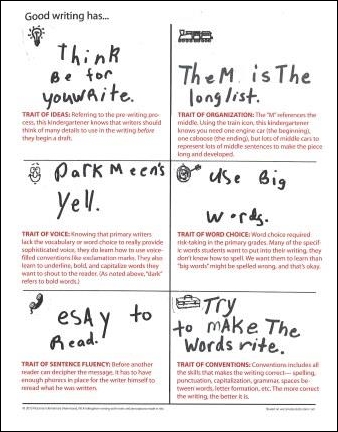 Good writing has...
Think
Be for
youwrite.
TRAIT OF IDEAS: Referring to the pre-writing pro-
cess, this kindergartener knows that writers should
think of many details to use in the writing before
they begin a draft.
TheM isThe
longlist.
TRAIT OF ORGANIZATION: The "M" references the
middle. Using the train icon, this kindergartener
knows you need one engine car (the beginning),
one caboose (the ending), but lots of middle cars to
represent lots of middle sentences to make the piece
long and developed.
Dark Meen's
Yell.
TRAIT OF VOICE: Knowing that primary writers
lack the vocabulary or word choice to really provide
sophisticated voice, they do learn how to use voice-
filled conventions like exclamation marks. They also
learn to underline, bold, and capitalize words they
want to shout to the reader. (As noted above, "dark"
refers to bold words.)
Use Big
words.
TRAIT OF WORD CHOICE: Word choice required
risk-taking in the primary grades. Many of the specif-
ic words students want to put into their writing, they
don't know how to spell. We want them to learn that
"big words" might be spelled wrong, and that's okay.
esAy to
Read.
TRAIT OF SENTENCE FLUENCY: Before another
reader can decipher the message, it has to have
enough phonics in place for the writer himself to
reread what he was written.
Try
to mAke The
Words rite.
TRAIT OF CONVENTIONS: Conventions includes all
the skills that makes the writing correct— spelling,
punctuation, capitalization, grammar, spaces be-
tween words, letter formation, etc. The more correct
the writing, the better it is.